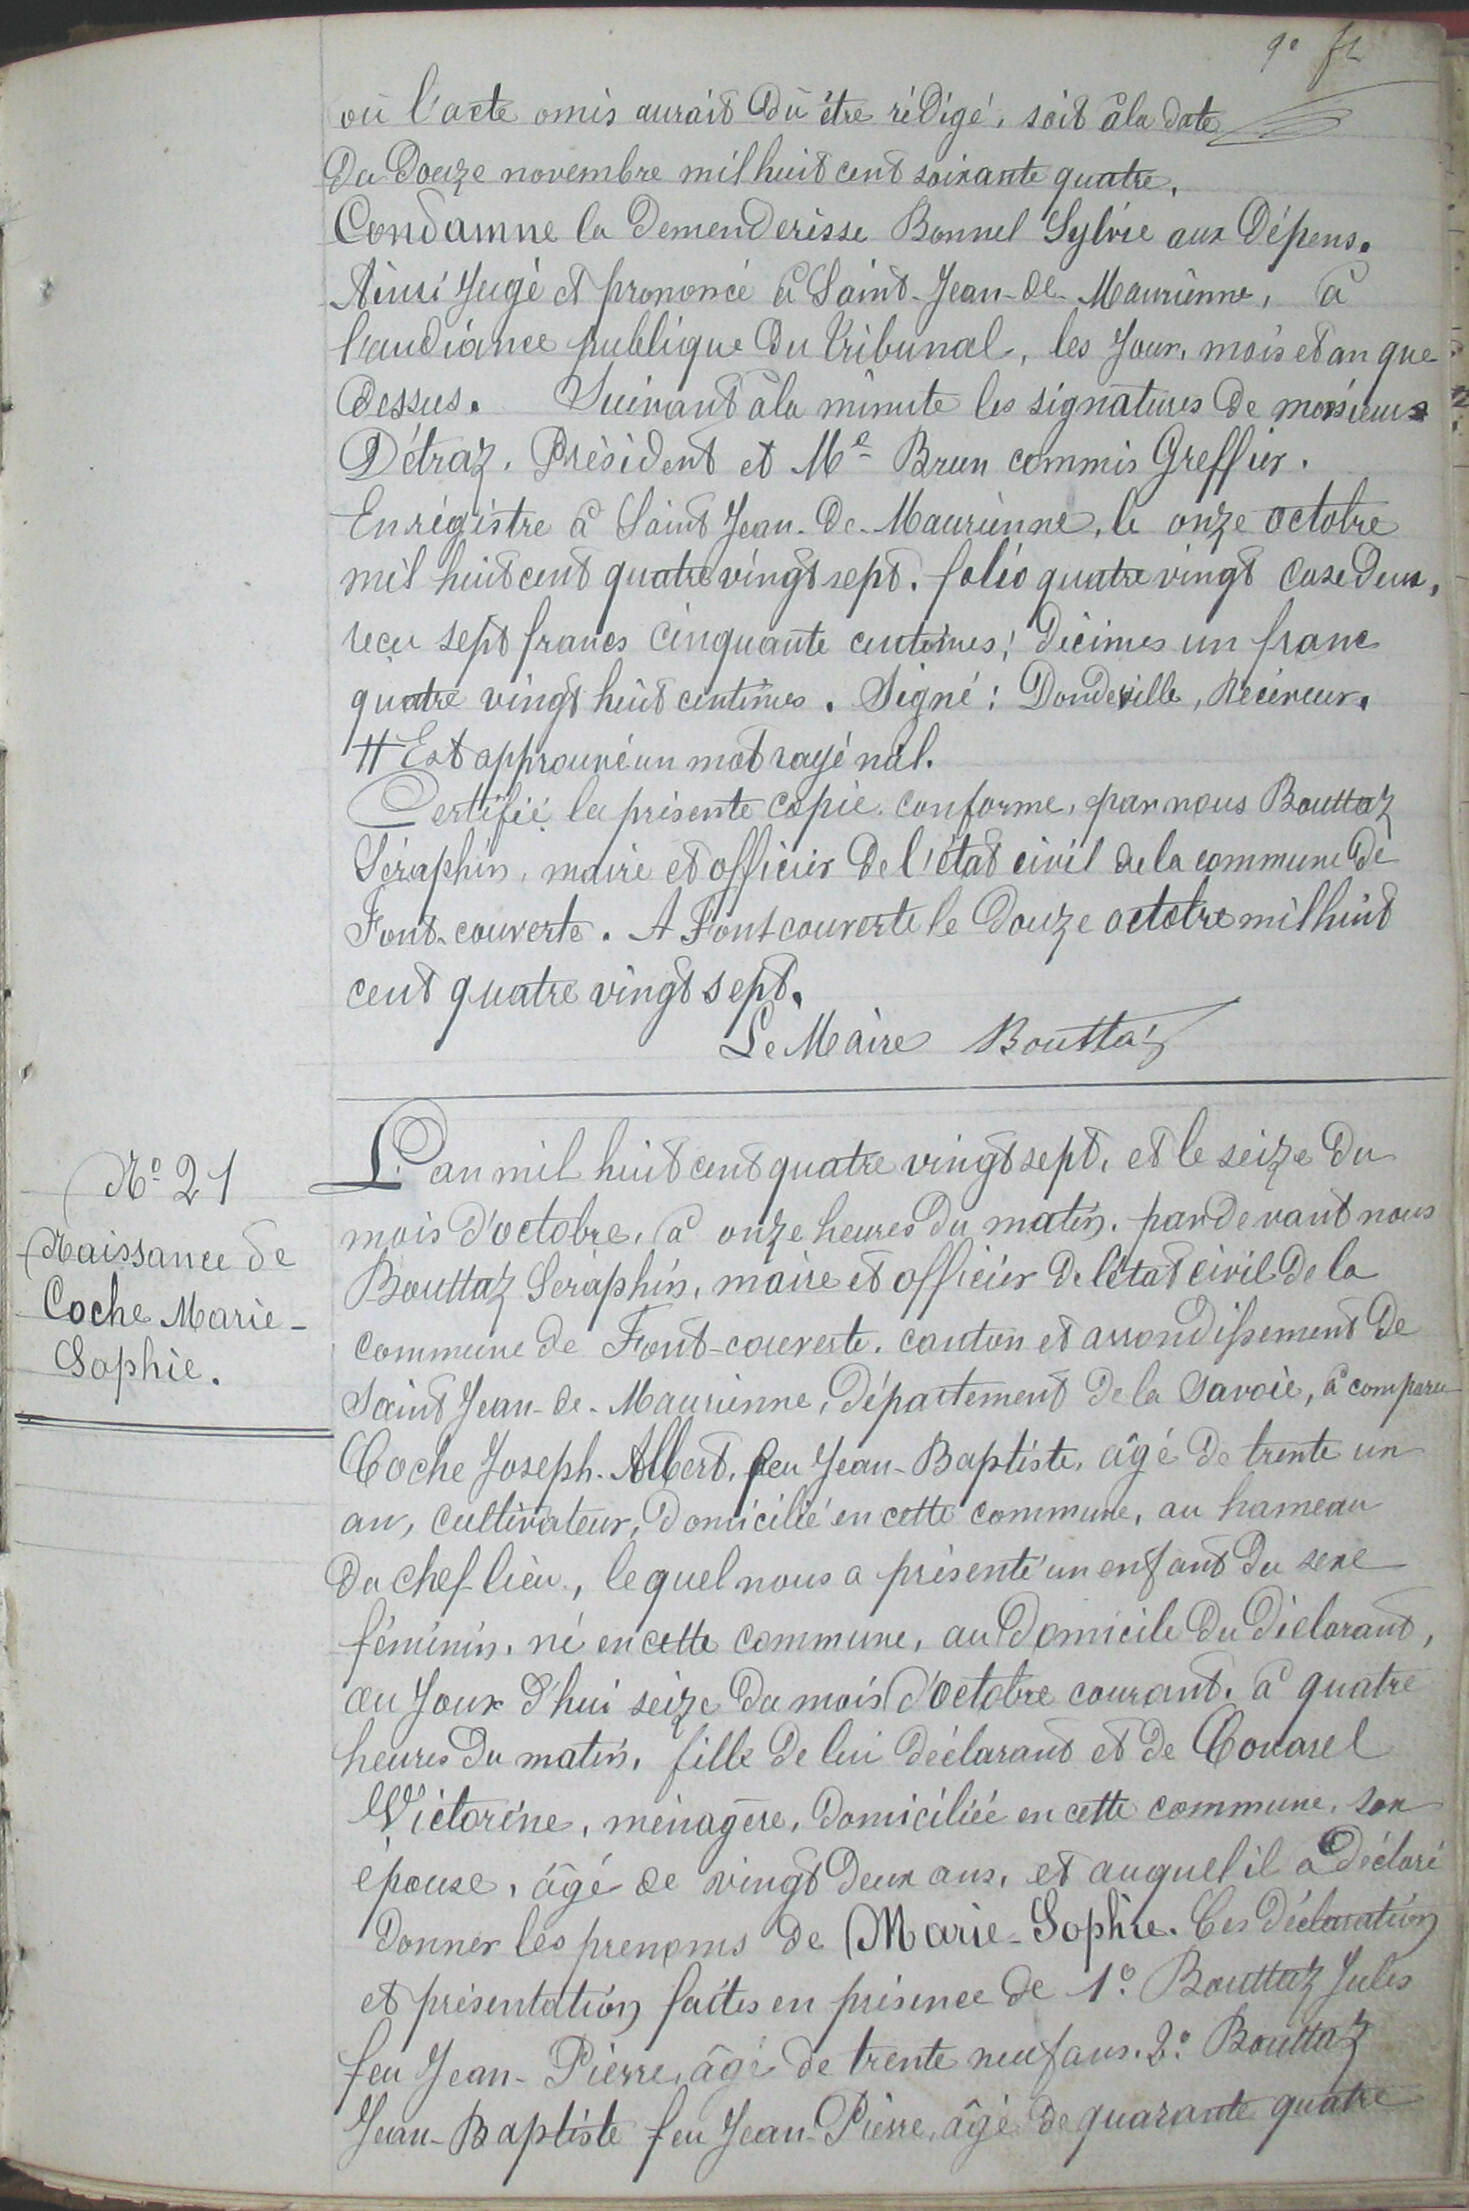 9e ft
où l'acte omis aurait dû être rédigé, soit à la date
du douze novembre mil huit cent soixante quatre.
Condamne la demenderisse Bonnel Sylvie aux dépens.
Ainsi jugé et prononcé à Saint-Jean-de-Maurienne, à
l'audiance publique du tribunal, les jour, mois et an que
dessus. Suivant à la minute les signatures de mosieurs
Détraz, Président et Me Brun commis Greffier.
Enrégistre à Saint Jean-de-Maurienne, le onze octobre
mil huit cent quatre vingt sept. folio quatre vingt case deux,
reçu sept francs cinquante centimes; décimes un franc
quatre vingt huit centimes. Signé: Dondeville, Receveur.
# Est approuvé un mot rayé nul.
Certifié la présente copie conforme, par nous Bouttaz
Séraphin, maire et officier de l'état civil de la commune de
Font-couverte. A Fontcouverte le douze octobre mil huit
cent quatre vingt sept.
Le Maire Bouttaz
No 21
Naissance de
Coche Marie-
Sophie.
L'an mil huit cent quatre vingt sept, et le seize du
mois d'octobre, à onze heures du matin. par devant nous
Bouttaz Séraphin, maire et officier de l'état civil de la
commune de Font-couverte. canton et arrondissement de
Saint Jean-de-Maurienne, département de la Savoie, à comparu
Coche Joseph-Albert, feu Jean-Baptiste, âgé de trente un
an, cultivateur, domicilié en cette commune, au hameau
du chef-lieu, lequel nous a présenté un enfant du sexe
féminin, né en cette commune, au domicile du déclarant,
au jour d'hui seize du mois d'octobre courant. à quatre
heures du matin, fille de lui déclarant et de Covarel
Victorine, ménagère, domiciliée en cette commune, son
épouse, âgé de vingt deux ans, et auquel il a déclaré
donner les prenoms de Marie-Sophie. Ces déclaration
et présentation faites en présence de 1º Bouttaz Jules
feu Jean-Pierre, âgé de trente neuf ans. 2º Bouttaz
Jean-Baptiste feu Jean-Pierre, âgé de quarante quatre